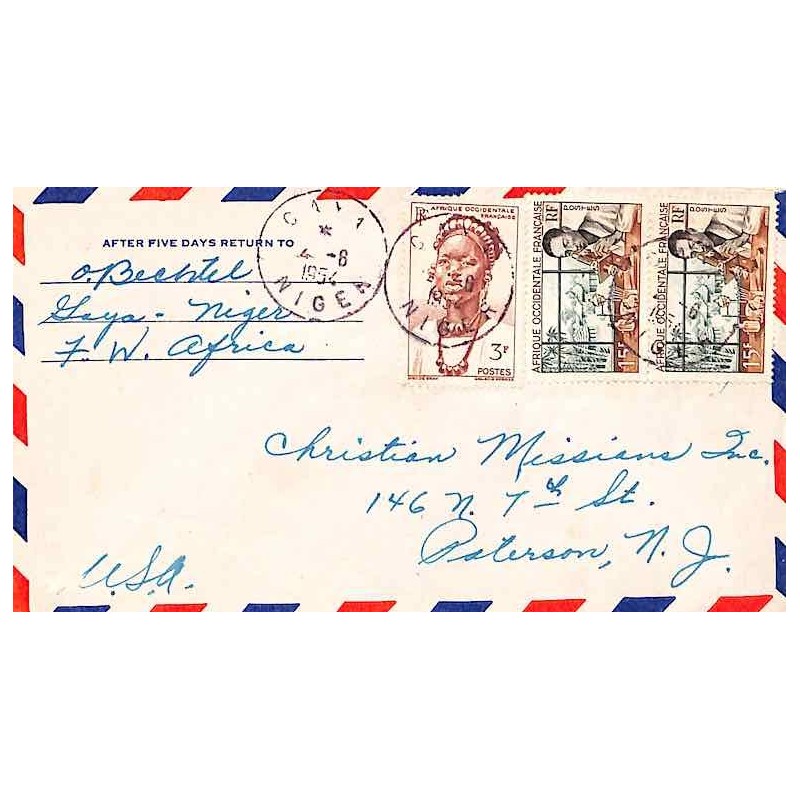 AFTER FIVE DAYS RETURN TO
O. Bechtel
Gaya - Niger
F. W. Africa
4 -8
1954
NIGER
RF AFRIQUE OCCIDENTALE
FRANÇAISE
3F
POSTES
NIGER
AFRIQUE OCCIDENTALE FRANÇAISE
RF
POSTES
15F
AFRIQUE OCCIDENTALE FRANÇAISE
RF
POSTES
15F
Christian Missians Inc.
146 N. 7th St.
Paterson, N. J.
U.S.A.